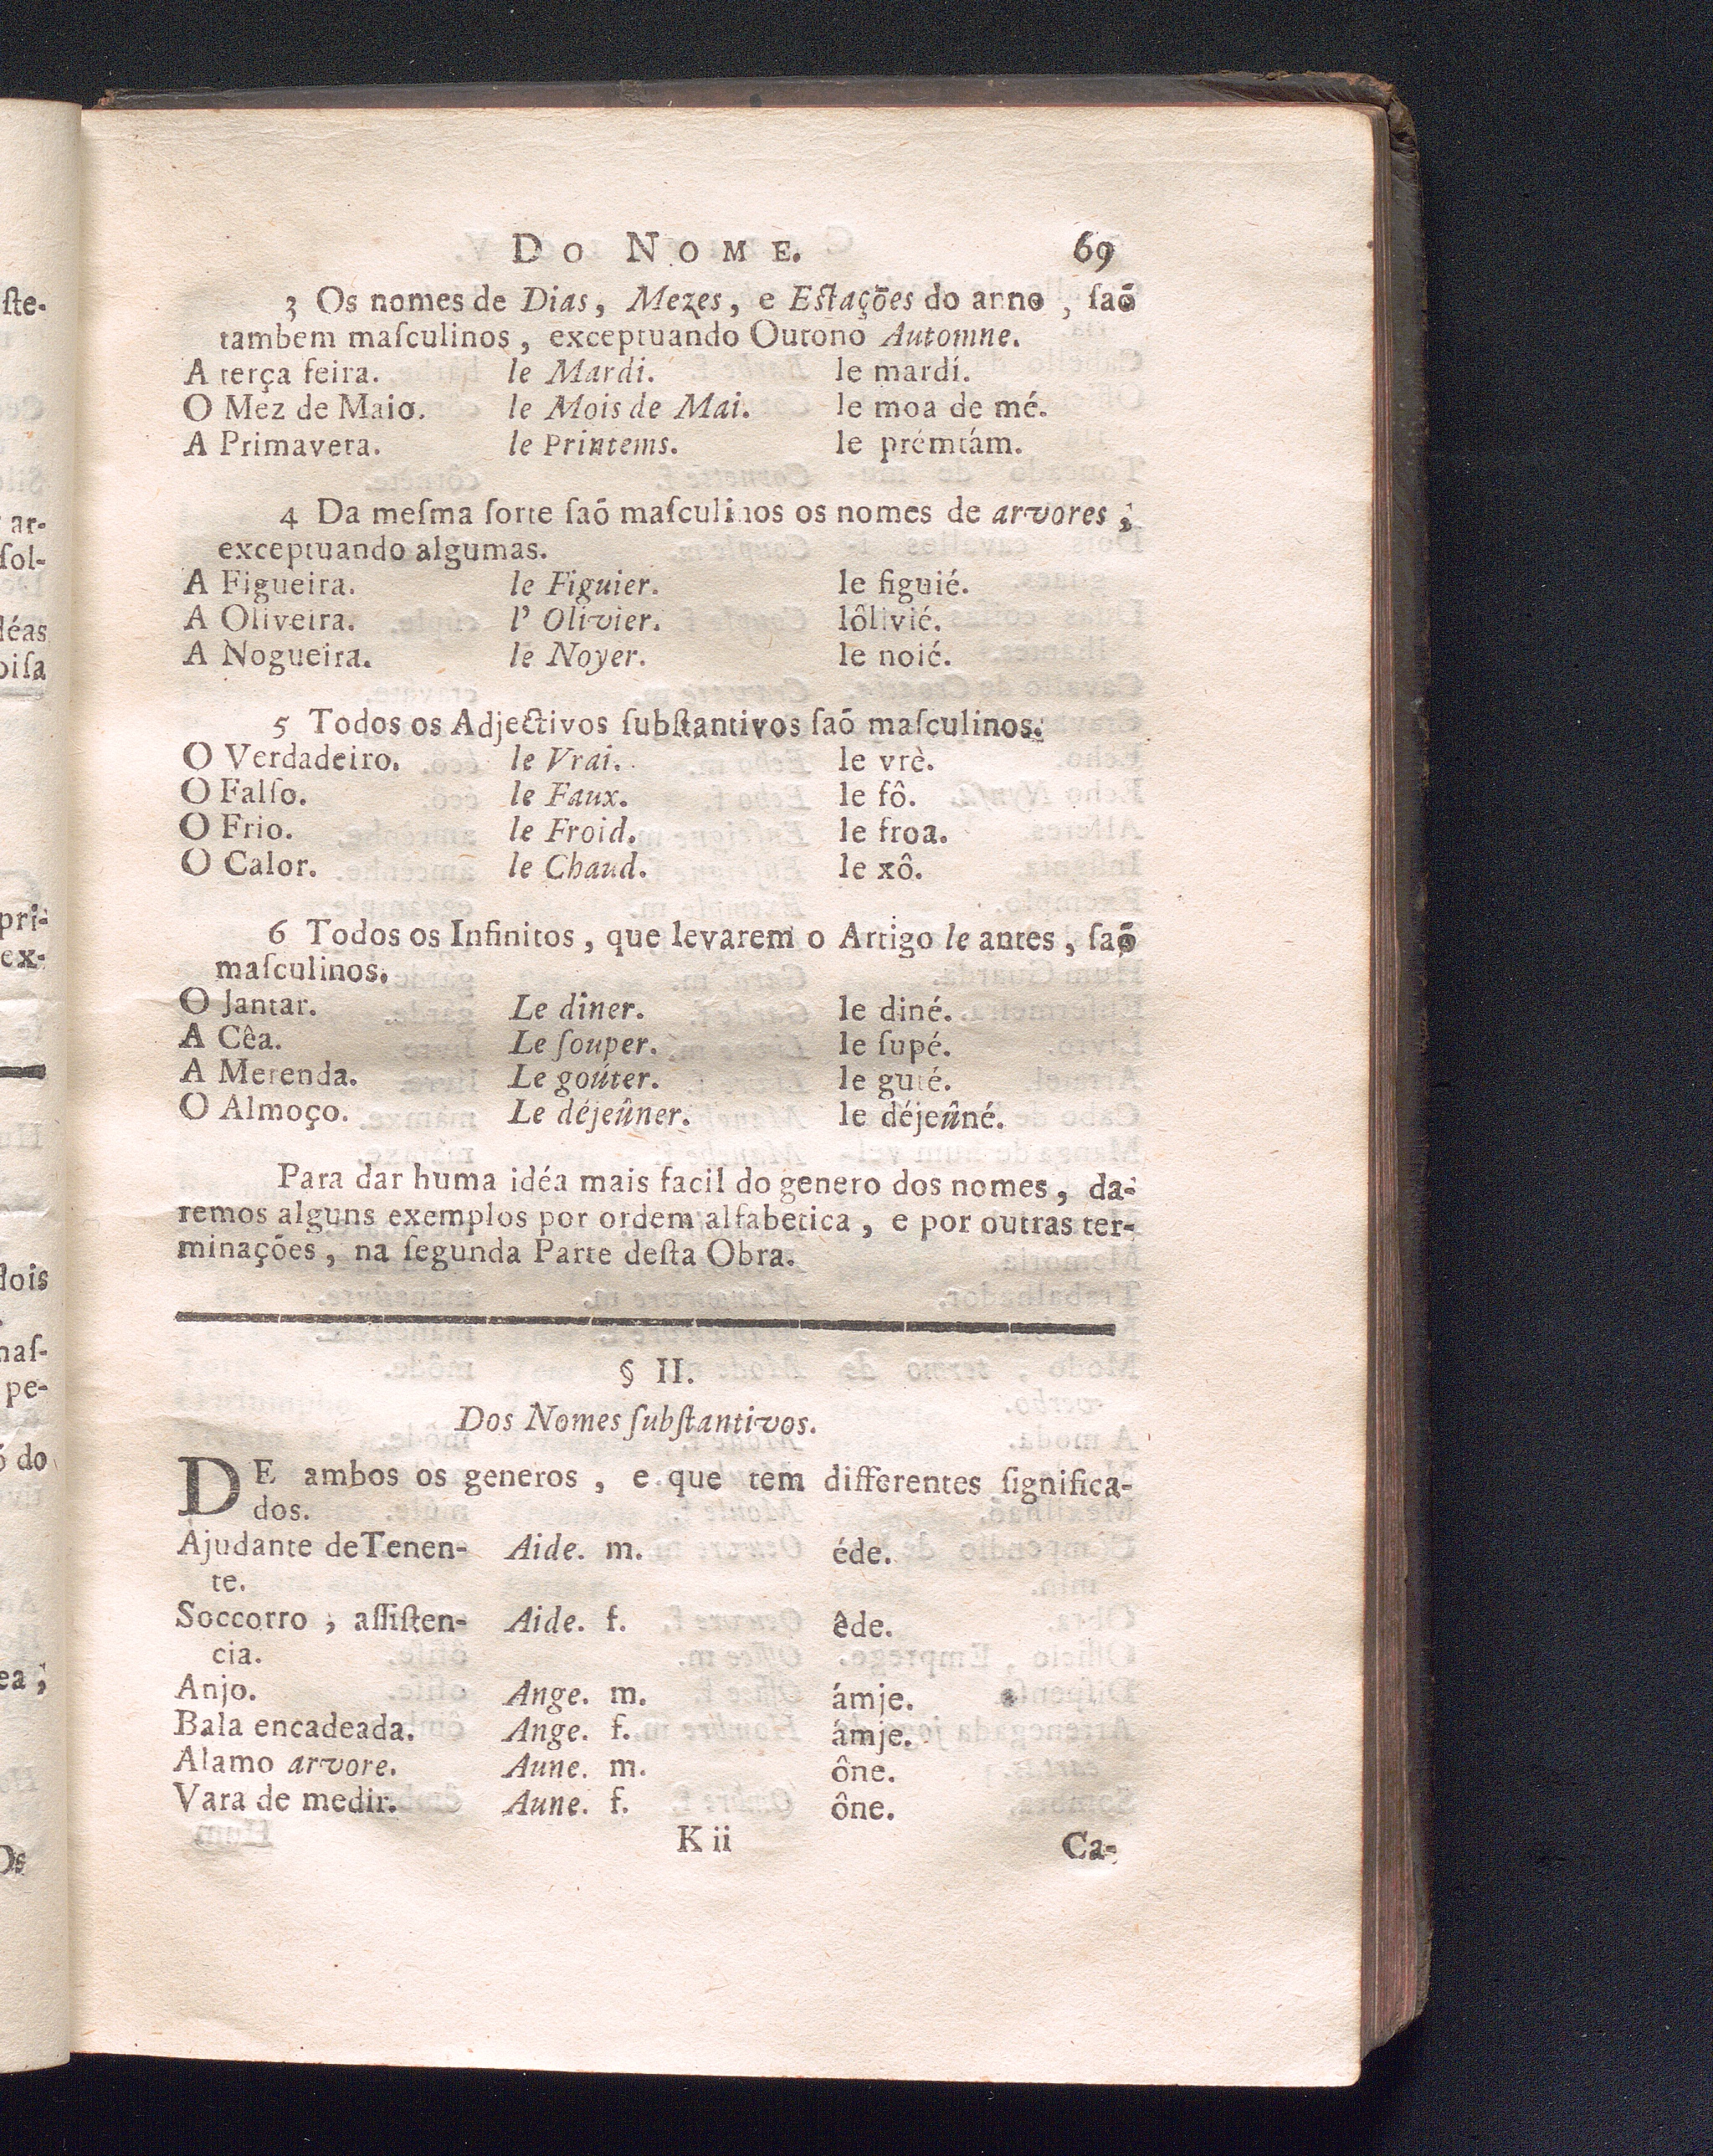 DO NOME. 69
3 Os nomes de Dias, Mezes, e Estações do anno, ſaõ
tambem maſculinos, exceptuando Outono Automne.
A terça feira. le Mardi. le mardí.
O Mez de Maio. le Mois de Mai. le moa de mé.
A Primavera. le Printems. le prémtám.
4 Da meſma ſorte ſaõ maſculinos os nomes de arvores;
exceptuando algumas.
A Figueira. le Figuier. le figuié.
A Oliveira. l' Olivier. lôlivié.
A Nogueira. le Noyer. le noié.
5 Todos os Adjectivos ſubſtantivos ſaõ maſculinos.
O Verdadeiro. le Vrai. le vrè.
O Falſo. le Faux. le fô.
O Frio. le Froid. le froa.
O Calor. le Chaud. le xô.
6 Todos os Infinitos, que levarem o Artigo le antes, ſaõ
maſculinos.
O Jantar. Le dîner. le diné.
A Cêa. Le ſouper. le ſupé.
A Merenda. Le goúter. le guté.
O Almoço. Le déjeûner. le déjeûné.
Para dar huma idéa mais facil do genero dos nomes, da-
remos alguns exemplos por ordem alfabetica, e por outras ter-
minações, na ſegunda Parte deſta Obra.
§ II.
Dos Nomes ſubſtantivos.
DE ambos os generos, e que tem differentes ſignifica-
dos.
Ajudante de Tenen- Aide. m. éde.
te.
Soccorro, aſſiſten- Aide. f. êde.
cia.
Anjo. Ange. m. ámje.
Bala encadeada. Ange. f. ámje.
Alamo arvore. Aune. m. ône.
Vara de medir. Aune. f. ône.
K ii Ca-